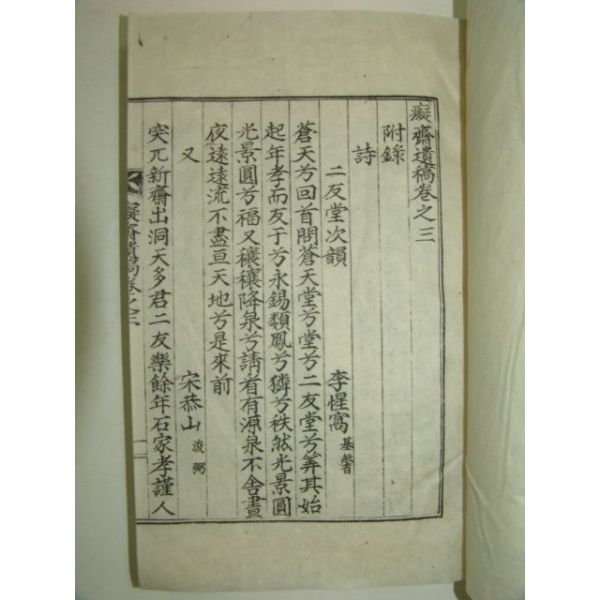 癡齋遺稿卷之三
附錄
詩
二友堂次韻 李惺窩基馨
蒼天兮回首問蒼天堂兮堂兮二友堂兮筭其始
起年孝而友于兮永錫類鳳兮獜兮秩然光景圓
光景圓兮福又穰穰降泉兮請看有源泉不舍晝
夜遠遠流不盡亘天地兮是來前
又 宋恭山浚弼
突兀新齋出洞天多君二友樂餘年石家孝謹人
癡齋遺稿卷之三
一